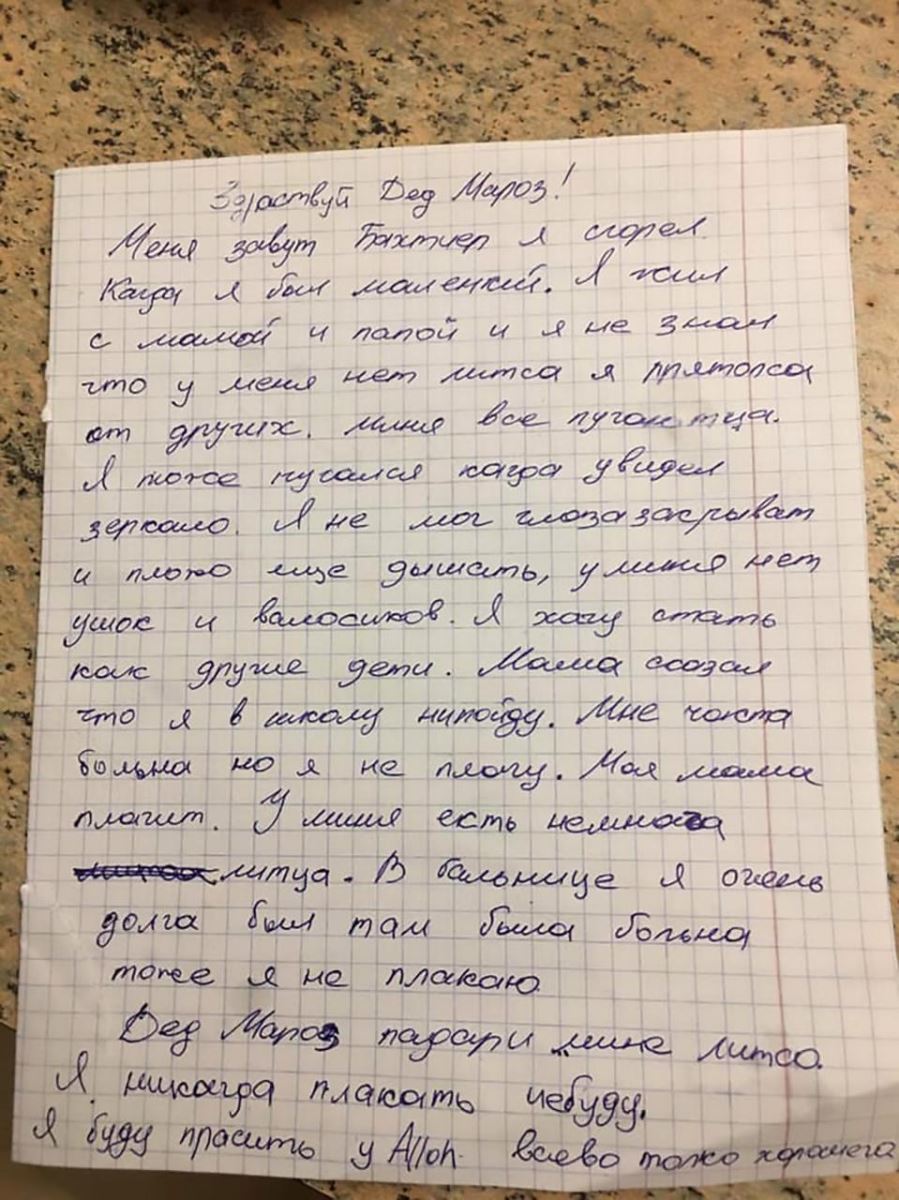 Здраствуй Дед Мароз!
Меня завут Бахтиер я сгорел.
Кагда я был маленкий. Я жил
с мамой и папой и я не знал
что у меня нет литса я прятолса
от других. миня все пугаютца.
Я тоже пугался кагда увидел
зеркало. Я не мог глоза закрыват
и плохо еще дышать, у миня нет
ушок и валосиков. Я хочу стать
как другие дети. Мама сказал
что я в школу нипойду. Мне часта
больна но я не плачу. Моя мама
плачит. У миня есть немнога
литца. В бальнице я очень
долга был там была больна
тоже я не плакаю.
Дед Мароз падари мине литсо.
Я никагда плакать небуду.
Я буду прасить у Alloh всево толко хорошега